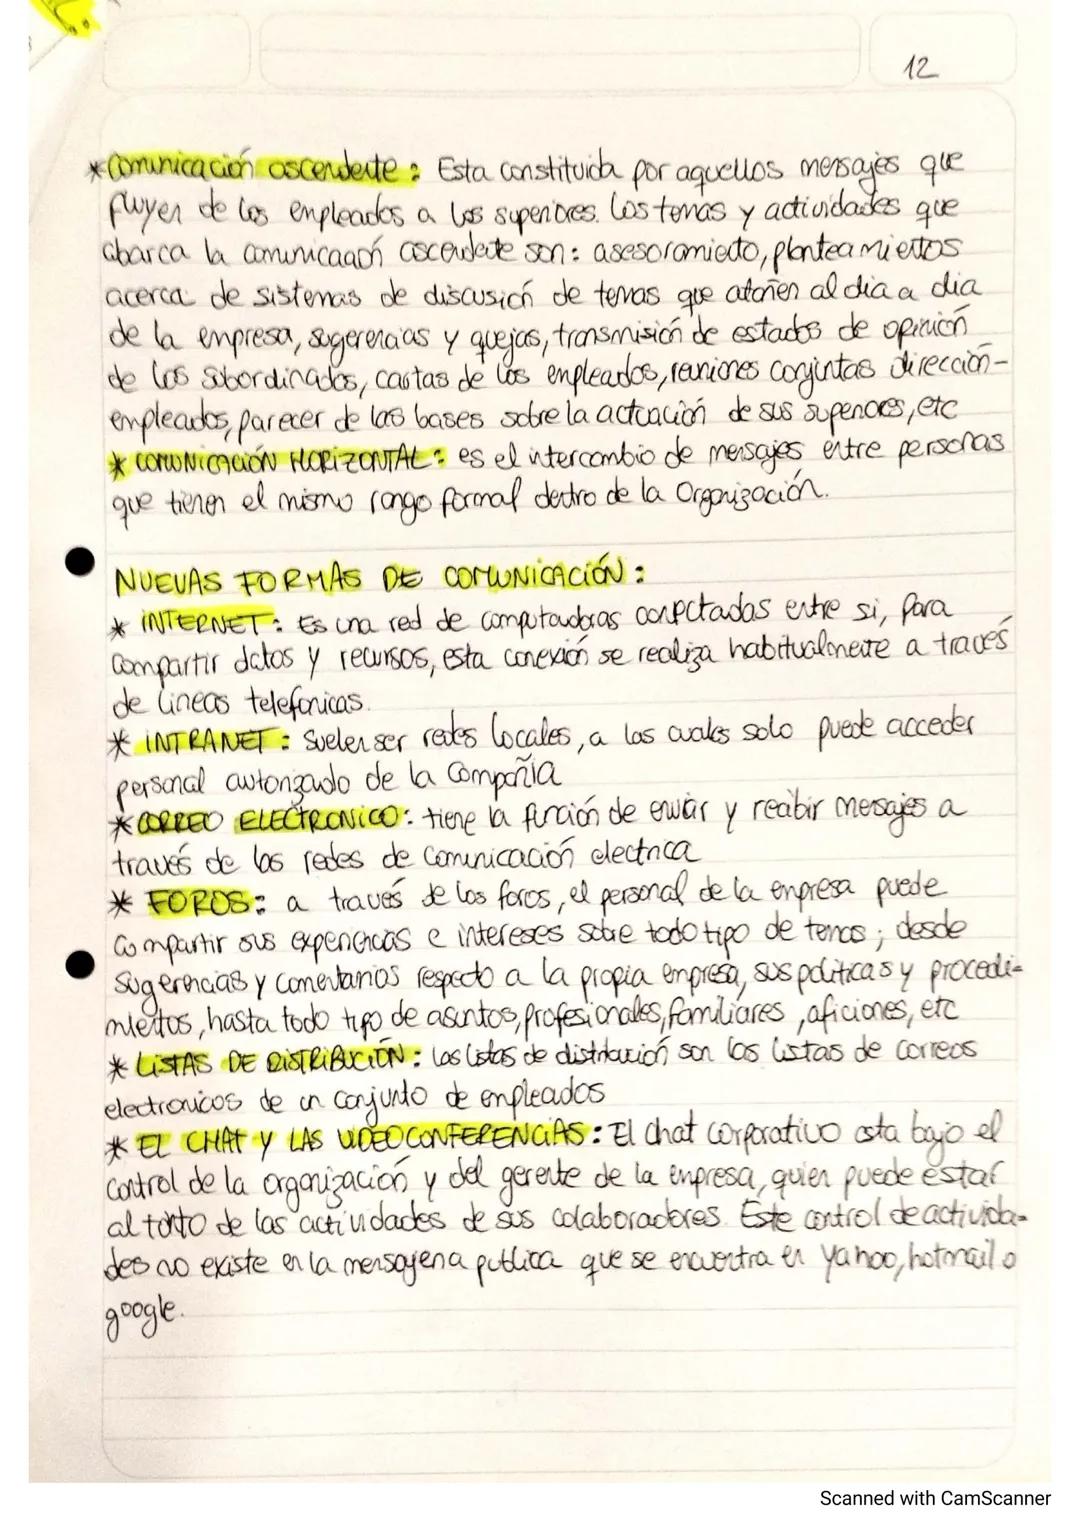 12
*Comunicación ascendente: Esta constituida por aquellos mensajes que
fluyen de los empleados a los superiores. Los temas y actividades que
abarca la comunicación ascendente son: asesoramiento, planteamientos
acerca de sistemas de discusión de temas que atañen al dia a dia
de la empresa, sugerencias y quejas, transmisión de estados de opinión
de los subordinados, cartas de los empleados, reuniones conjuntas dirección-
empleados, parecer de las bases sobre la actuación de sus superiores, etc
* COMUNICACIÓN HORIZONTAL: es el intercambio de mensajes entre personas
que tienen el mismo rango formal dentro de la Organización.
NUEVAS FORMAS DE COMUNICACIÓN:
* INTERNET: Es una red de computadoras conectadas entre si, para
compartir datos y recursos, esta conexión se realiza habitualmente a través
de lineas telefonicas.
* INTRANET: Suelen ser redes locales, a las cuales solo puede acceder
personal autorizado de la Compañia
*CORREO ELECTRONICO: tiene la función de enviar y recibir mensajes a
través de las redes de comunicación electrica
* FOROS: a través de los foros, el personal de la empresa puede
compartir sus experiencias e intereses sobre todo tipo de temas; desde
sugerencias y comentarios respecto a la propia empresa, sus politicas y procedi-
mientos, hasta todo tipo de asuntos, profesionales, familiares, aficiones, etc
* LISTAS DE DISTRIBUCIÓN: las listas de distribución son las listas de correos
electronicos de un conjunto de empleados
* EL CHAT Y LAS VIDEOCONFERENCIAS: El chat corporativo esta bajo el
control de la organización y del gerente de la empresa, quien puede estar
al tanto de las actividades de sus colaboradores. Este control de activida-
des no existe en la mensajeria publica que se encuentra en yahoo, hotmail o
google.
Scanned with CamScanner